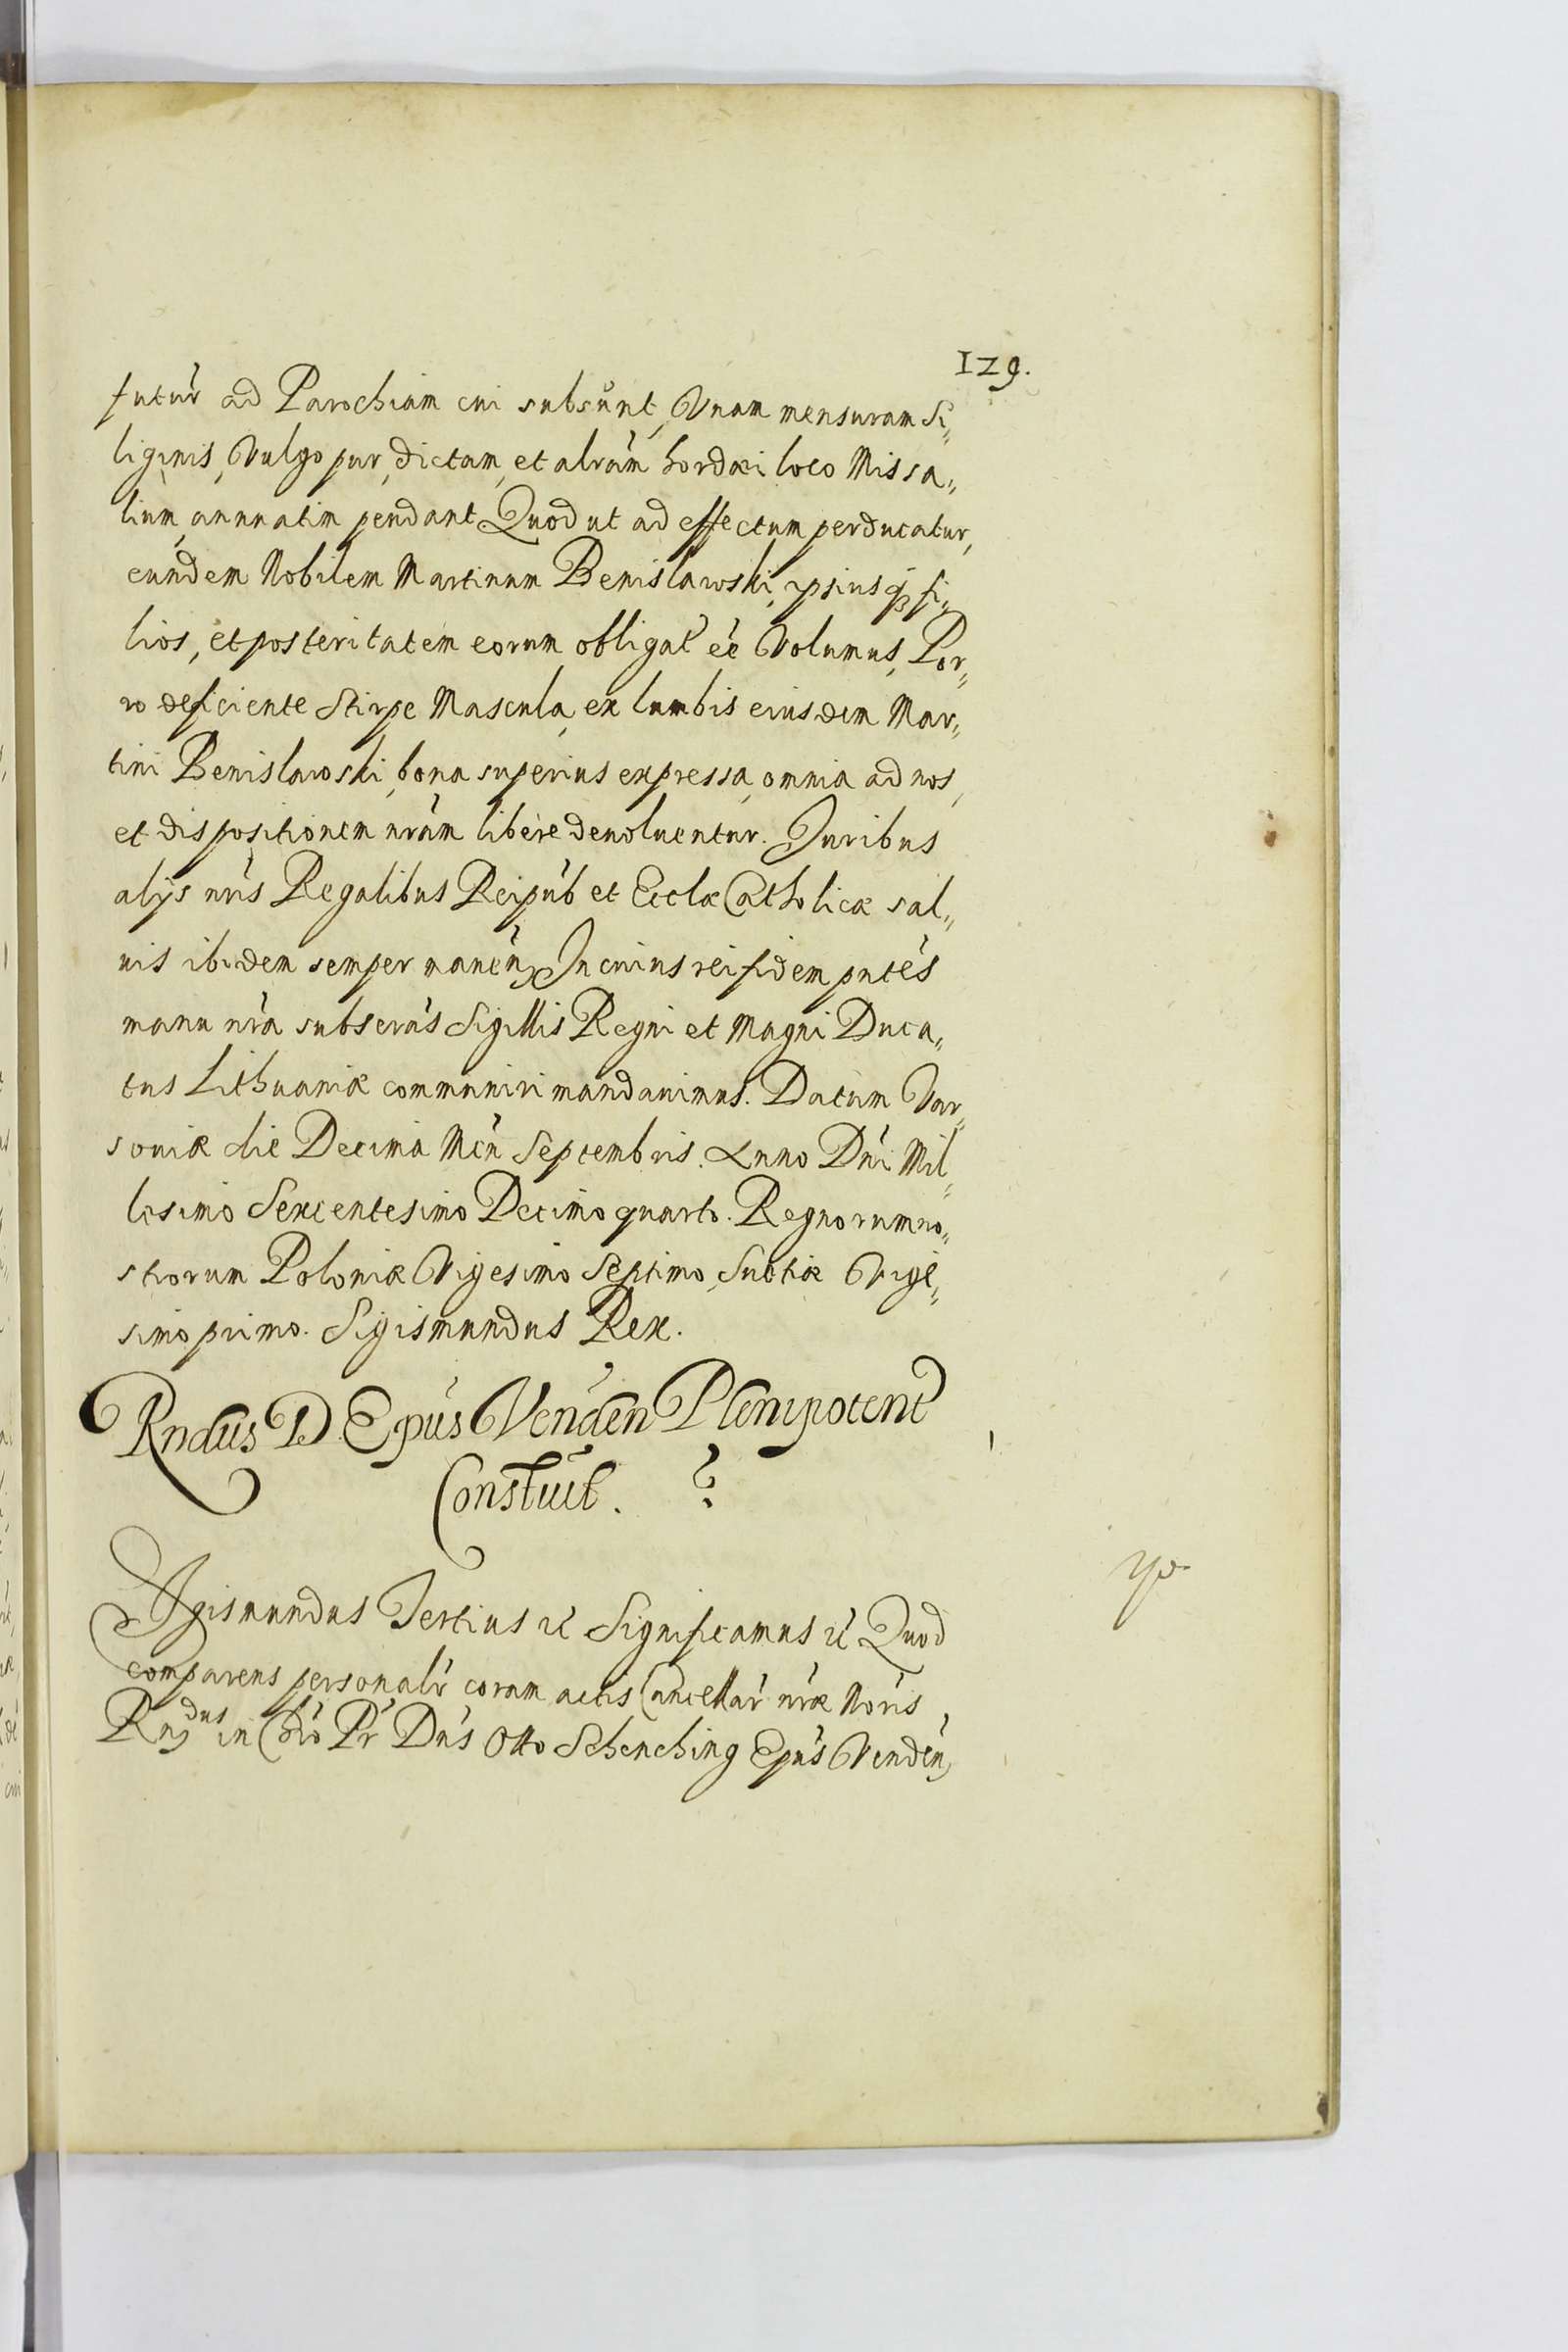 129.
futur̀ ad Parochiam cui subsunt, Vnam mensuram Si„
liginis, Vulgo pur, dictam, et alrám hordæi loco Missa„
lium, annuatim pendant Quod ut ad effectum perducatur,
eundem Nobilem Martinum Benislawski, ipsiusq; fi„
lios, et posteritatem eorum obligat́ eé Volumus, Por„
ro deficiente Stirpe Mascula, ex lumbis eiusdem Mar„
tini Benislawski, bona superius expressa, omnia ad nos,
et dispositionem nrám libere deuoluentur. Juribus
alijs nrís Regalibus Reipúb et Ecclæ Catholicæ sal„
uis ibidem semper manén, In cuius rei fidem pntés
manu nrá subscrás Sigillis Regni et Magni Duca„
tus Lithuaniæ communiri mandauimus. Datum Var„
souiæ die Decima Mén Septembris. Anno Dní Mil„
lesimo Sexcentesimo Decimo quarto. Regnorum no„
strorum Poloniæ Vigesimo Septimo, Suetiæ Vige„
simo primo. Sigismundus Rex.
Rndus D. Epús Vendén Plenipotent
Constuit.
Sigismundus Tertius ić Significamus ić Quod
comparens personalŕ coram actis Cancellaŕ nræ Noŕis
Rndus in Chró Pŕ Dnś Otto Schenching Epús Vendén,